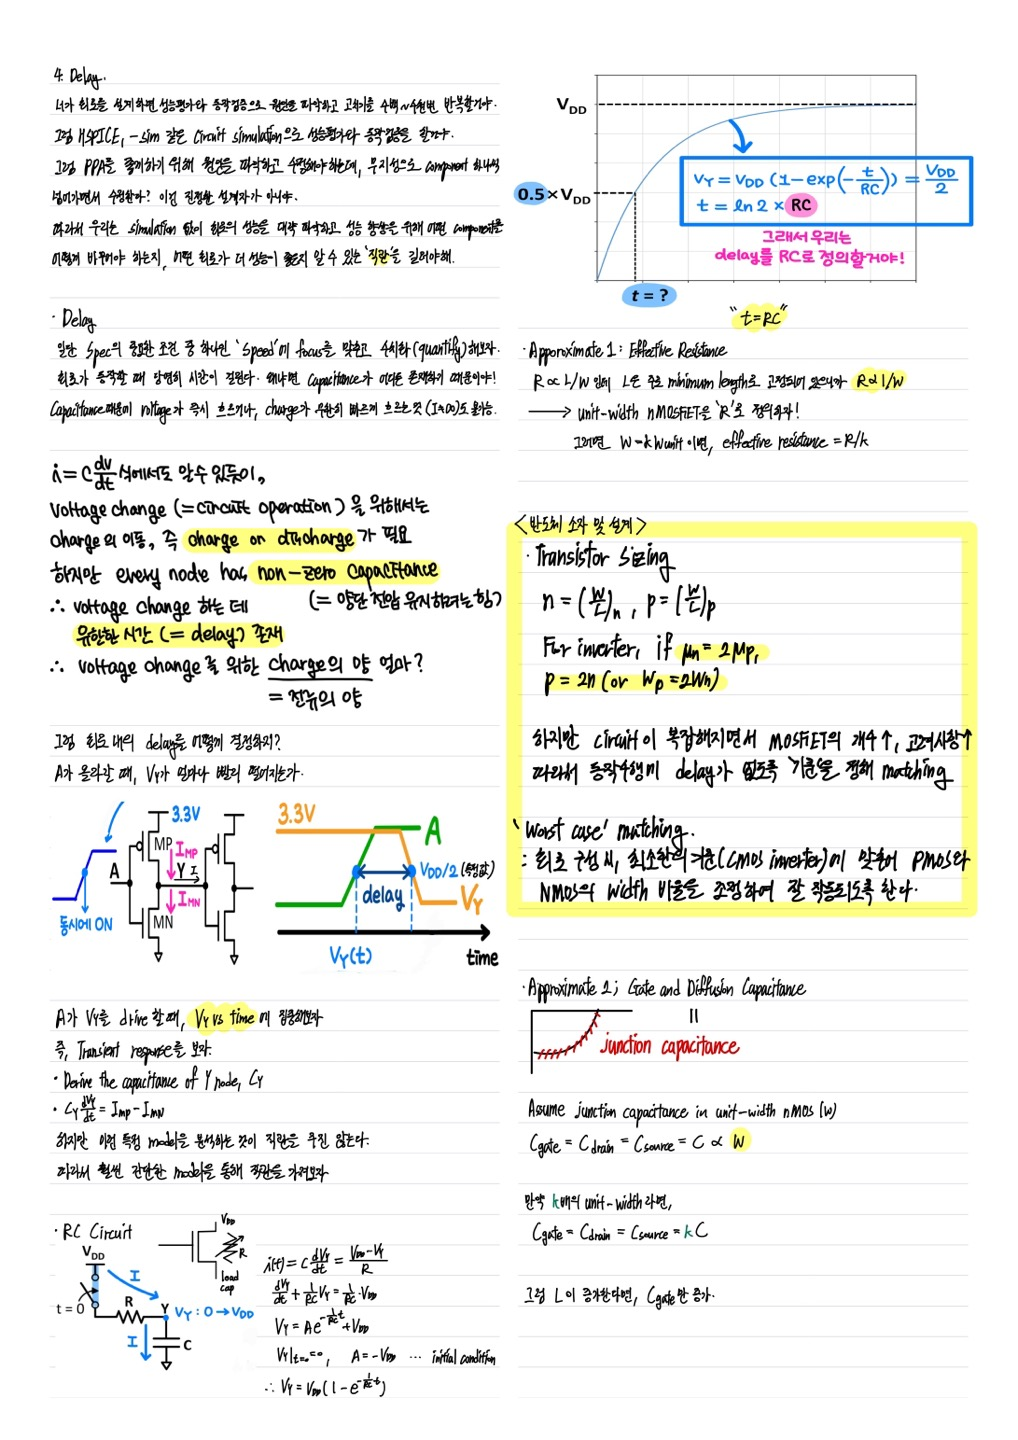 4. Delay.
너가 회로를 설계하면 성능평가와 동작검증으로 원인을 파악하고 고치기를 수백~수천번 반복할거야.
그럼 HSPICE, -sim 같은 Circuit simulation으로 성능평가와 동작검증을 할거야.
그럼 PPA를 좋게하기 위해 원인을 파악하고 수정해야하는데, 무지성으로 component 하나씩
수정한다? 이건 진정한 설계자가 아니야.
따라서 우리는 simulation 없이 회로의 성능을 대략 파악하고 성능 향상을 위해 어떤 component를
어떻게 바꾸어야 하는지, 어떤 회로가 더 성능이 좋은지 알 수 있는 '직관'을 길러야해.
· Delay
일단 Spec의 중요한 조건 중 하나인 'Speed'에 focus를 맞추고 수치화(quantify)해보자.
회로가 동작할 때 당연히 시간이 걸린다. 왜냐면 Capacitance가 어디든 존재하기 때문이야!
Capacitance때문에 voltage가 즉시 흐르거나, charge가 무한히 빠르게 흐르는것 (I=∞)도 불가능.
i = C dv/dt 식에서도 알 수 있듯이,
Voltage change (=circuit operation) 을 위해서는
charge의 이동, 즉 charge or discharge가 필요
하지만 every node has non-zero capacitance
(= 양단 전압 유지하려는 힘)
∴ voltage change 하는 데
유한한 시간 (= delay) 존재
∴ voltage change를 위한 charge의 양 얼마?
= 전류의 양
그럼 회로 내의 delay를 어떻게 결정하지?
A가 올라갈 때, VY가 얼마나 빨리 떨어지는가.
3.3V
MP
IMP
A
Y
I
IMN
MN
동시에 ON
3.3V
A
VDD/2 (특정값)
delay
VY
VY(t)
time
A가 VY를 drive할 때, VY vs time에 집중해보자
즉, Transient response를 보자.
· Derive the capacitance of Y node, CY
· CY dVY/dt = IMP - IMN
하지만 이런 복잡 model을 분석하는 것이 직관을 주진 않는다.
따라서 훨씬 간단한 model을 통해 직관을 가져보자
· RC Circuit
VDD
R
load
cap
VDD
I
t = 0
R
Y
VY : 0 → VDD
I
C
i(t) = C dVY/dt = (VDD-VY)/R
dVY/dt + 1/RC VY = 1/RC · VDD
VY = A e^(-1/RC t) + VDD
VY|t=0 = 0, A = -VDD ··· initial condition
∴ VY = VDD (1 - e^(-1/RC t))
VDD
0.5 × VDD
VY = VDD (1-exp(-t/RC)) = VDD/2
t = ln 2 × RC
그래서 우리는
delay를 RC로 정의할거야!
t = ?
"t=RC"
· Approximate 1: Effective Resistance
R ∝ L/W 인데 L은 주로 minimum length로 고정되어 있으니까 R ∝ 1/W
→ unit-width nMOSFET을 'R'로 정의하자!
그러면 W = k Wunit 이면, effective resistance = R/k
<반도체 소자 및 설계>
· Transistor Sizing
n = (W/L)n , p = (W/L)p
For inverter, if μn = 2μp,
p = 2n (or Wp = 2Wn)
하지만 circuit이 복잡해지면서 MOSFET의 개수↑, 고려사항↑
따라서 동작수행에 delay가 없도록 '기준'을 정해 matching
'Worst case' matching.
: 회로 구성 시, 최소한의 기준(CMOS inverter)에 맞추어 PMOS와
NMOS의 width 비율을 조정하여 잘 작동되도록 한다.
· Approximate 2; Gate and Diffusion Capacitance
=
junction capacitance
Assume junction capacitance in unit-width nMOS (W)
Cgate = Cdrain = Csource = C ∝ W
만약 k배의 unit-width 라면,
Cgate = Cdrain = Csource = k C
그럼 L이 증가한다면, Cgate만 증가.